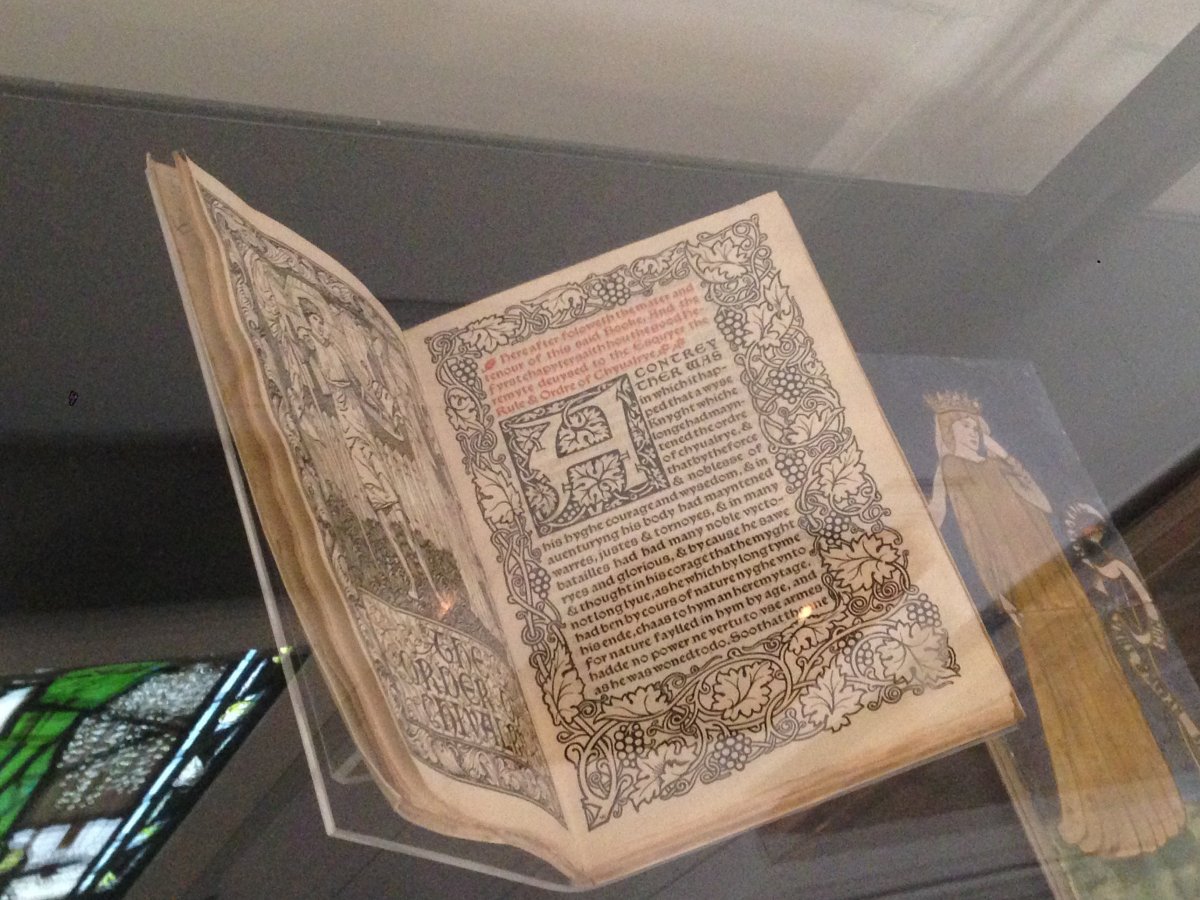 THE
ORDER
CHIVA
Here after foloweth the mater and
tenour of this said Booke. And the
fyrst chapyter saith hou the good he-
remyte devysed to the Esquyer the
Rule & Ordre of Chyualrye.
A CONTREY
THER WAS
in which it hap-
ped that a wyse
Knyght whiche
longe had mayn-
tened the ordre
of chyualrye, &
that by the force
& noblesse of
his hyghe courage and wysedom, & in
auenturyng his body had mayntened
warres, justes & tornoyes, & in many
batailles had had many noble vycto-
ryes and glorious, & by cause he sawe
& thought in his corage that he myght
not long lyue, as he which by long tyme
had ben by cours of nature nyghe vnto
his ende, chaas to hym an heremytage.
For nature faylled in hym by age, and
hadde no power ne vertu to vse armes
as he was woned to do. Soo that thenne